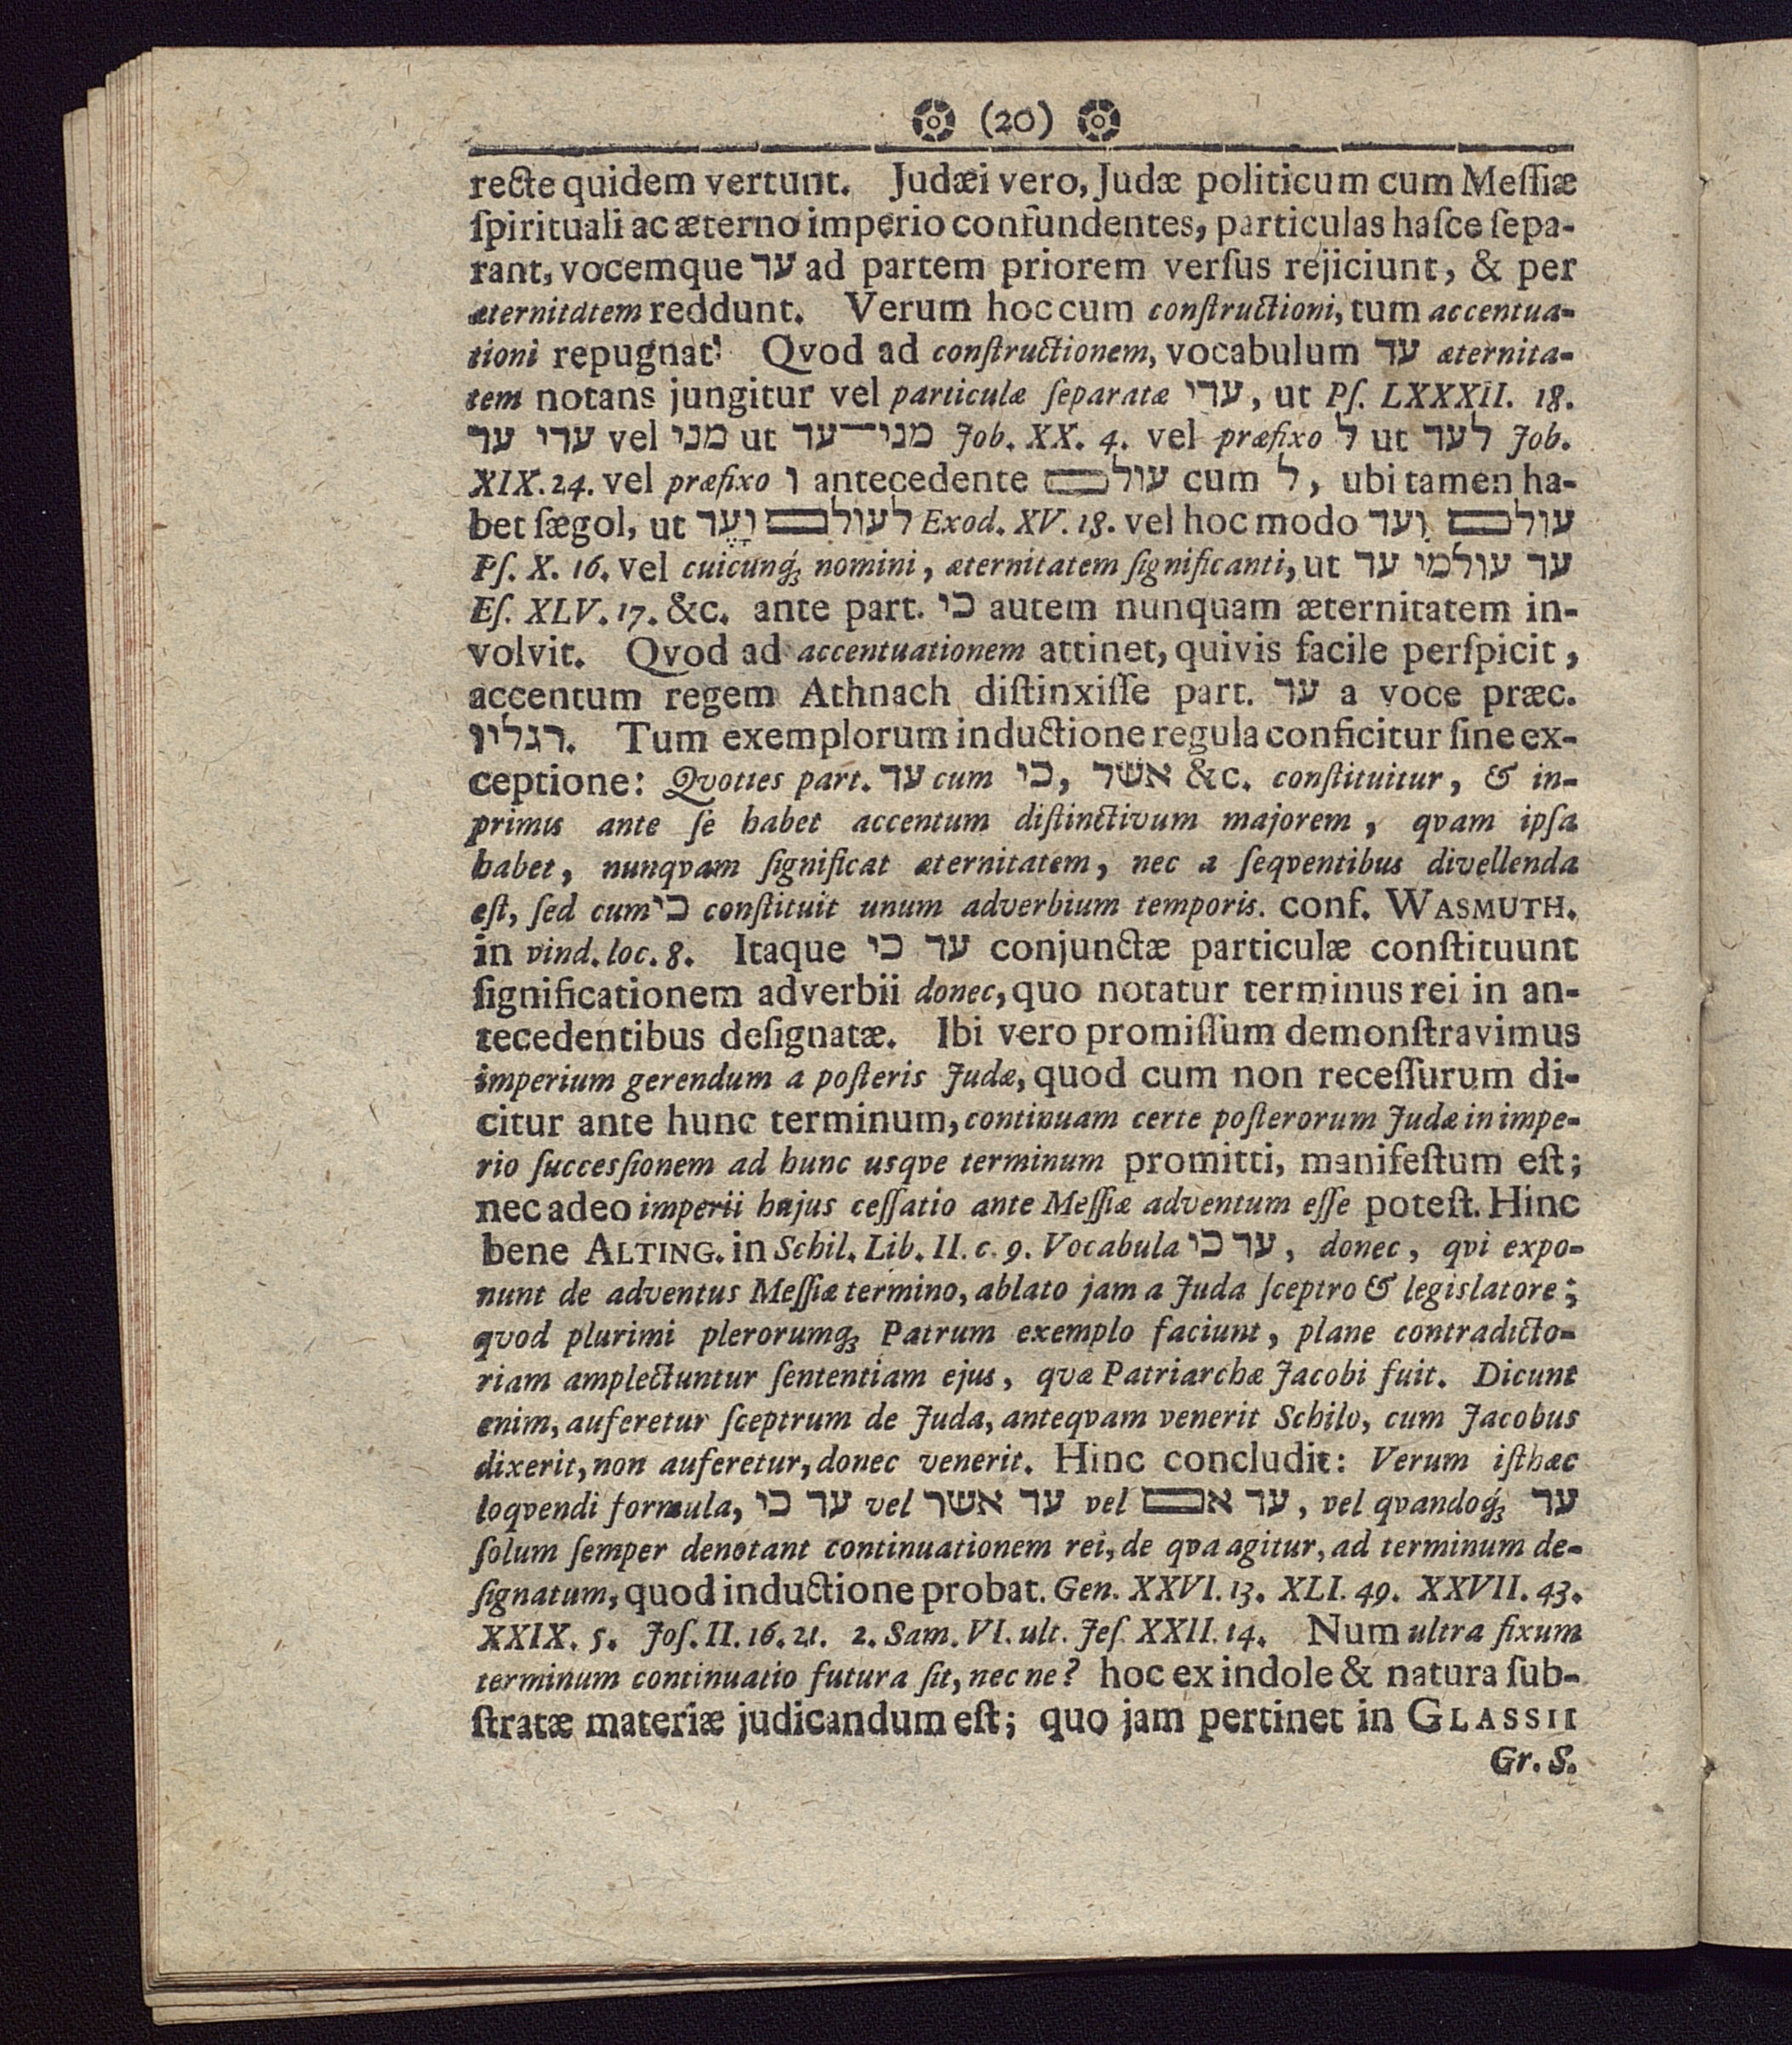 (20)
recte quidem vertunt. Judæi vero, Judæ politicum cum Meſſiæ
ſpirituali ac æterno imperio confundentes, particulas haſce ſepa-
rant, vocemque עד ad partem priorem verſus rejiciunt, & per
æternitatem reddunt. Verum hoc cum conſtructioni, tum accentua-
tioni repugnat! Qvod ad conſtructionem, vocabulum עד æternita-
tem notans jungitur vel particulæ ſeparatæ עדי, ut Pſ. LXXXII. 18.
עדי עד vel מני ut מני־עד Job. XX. 4. vel præfixo ל ut לעד Job.
XIX. 24. vel præfixo ו antecedente עולם cum ל, ubi tamen ha-
bet ſægol, ut לעולם וָעֶד Exod. XV. 18. vel hoc modo עולם ועד
Pſ. X. 16. vel cuicunq; nomini, æternitatem ſignificanti, ut עד עולמי עד
Eſ. XLV. 17. &c. ante part. כי autem nunquam æternitatem in-
volvit. Qvod ad accentuationem attinet, quivis facile perſpicit,
accentum regem Athnach diſtinxiſſe part. עד a voce præc.
רגליו. Tum exemplorum inductione regula conficitur ſine ex-
ceptione: Qvoties part. עד cum כי, אשר &c. conſtituitur, & in-
primis ante ſe habet accentum diſtinctivum majorem, qvam ipſa
habet, nunqvam ſignificat æternitatem, nec a ſeqventibus divellenda
eſt, ſed cum כי conſtituit unum adverbium temporis. conf. WASMUTH.
in vind. loc. 8. Itaque עד כי conjunctæ particulæ conſtituunt
ſignificationem adverbii donec, quo notatur terminus rei in an-
tecedentibus deſignatæ. Ibi vero promiſſum demonſtravimus
imperium gerendum a poſteris Judæ, quod cum non receſſurum di-
citur ante hunc terminum, continuam certe poſterorum Judæ in impe-
rio ſucceſſionem ad hunc usqve terminum promitti, manifeſtum eſt;
nec adeo imperii hujus ceſſatio ante Meſſiæ adventum eſſe poteſt. Hinc
bene ALTING. in Schil. Lib. II. c. 9. Vocabula עד כי, donec, qvi expo-
nunt de adventus Meſſiæ termino, ablato jam a Juda ſceptro & legislatore;
qvod plurimi plerorumq; Patrum exemplo faciunt, plane contradicto-
riam amplectuntur ſententiam ejus, qvæ Patriarchæ Jacobi fuit. Dicunt
enim, auferetur ſceptrum de Juda, anteqvam venerit Schilo, cum Jacobus
dixerit, non auferetur, donec venerit. Hinc concludit: Verum iſthæc
loqvendi formula, עד כי vel עד אשר vel עד אם, vel qvandoq; עד
ſolum ſemper denotant continuationem rei, de qva agitur, ad terminum de-
ſignatum, quod inductione probat. Gen. XXVI. 13. XLI. 49. XXVII. 43.
XXIX. 5. Joſ. II. 16. 21. 2. Sam. VI. ult. Jeſ. XXII. 14. Num ultra fixum
terminum continuatio futura ſit, nec ne? hoc ex indole & natura ſub-
ſtratæ materiæ judicandum eſt; quo jam pertinet in GLASSII
Gr. S.